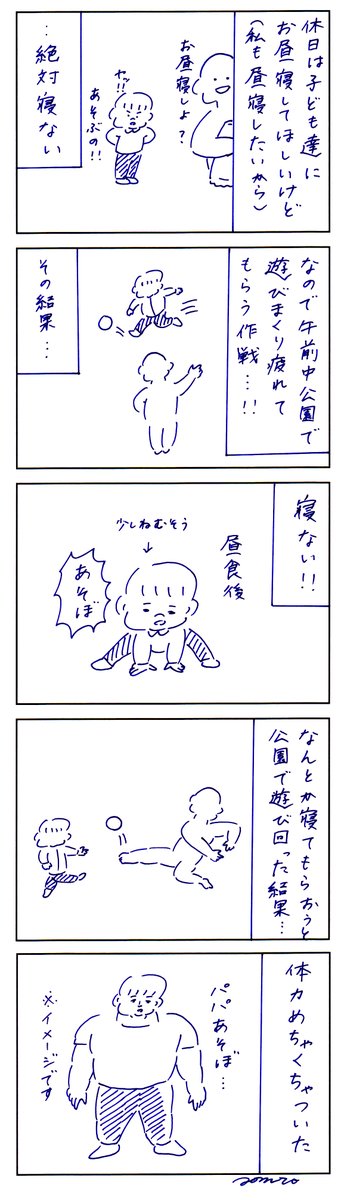 休日は子ども達に
お昼寝してほしいけど
(私も昼寝したいから)
お昼寝しよ?
ヤッ!!
あそぶの!!
…絶対寝ない
なので午前中公園で
遊びまくり疲れて
もらう作戦…!!
その結果…
寝ない!!
昼食後
少しねむそう
↓
あそぼ
なんとか寝てもらおうと
公園で遊び回った結果…
体力めちゃくちゃついた
パパあそぼ…
※イメージです